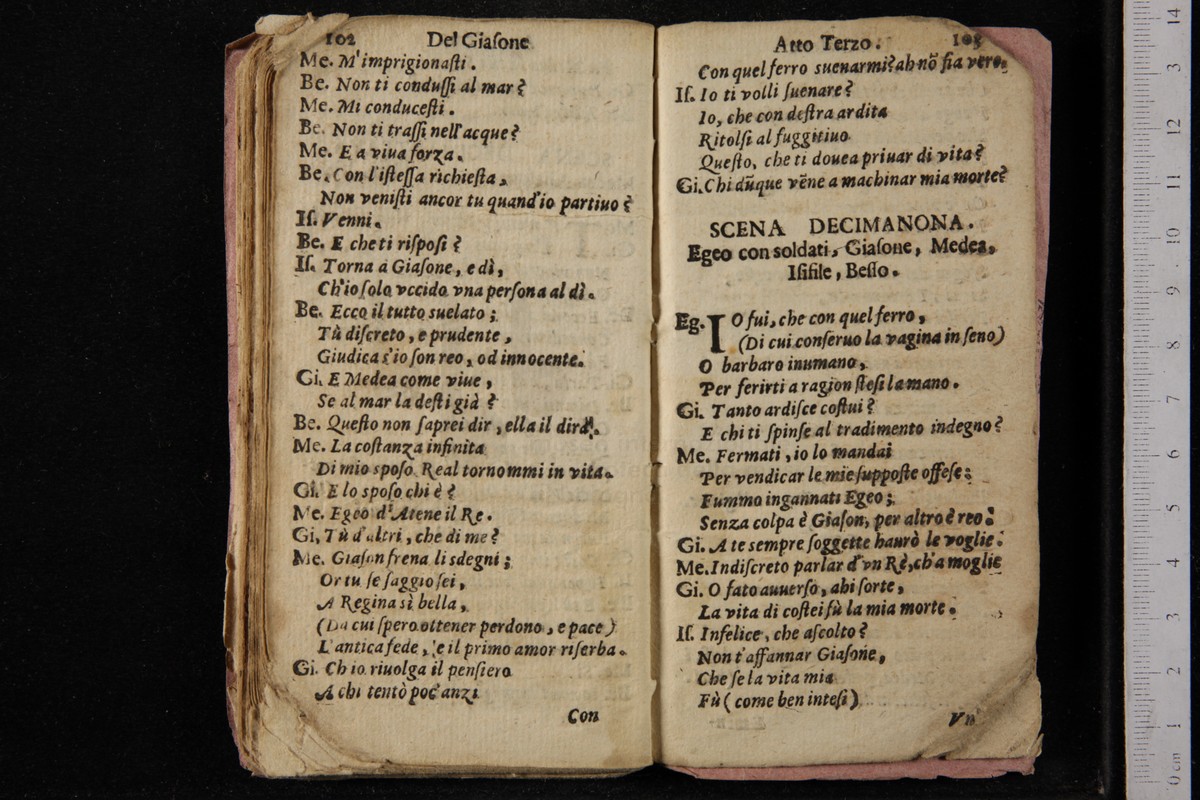 102 Del Giaſone
Me. M'imprigionaſti.
Be. Non ti conduſſi al mar?
Me. Mi conduceſti.
Be. Non ti traſſi nell'acque?
Me. E a viua forza.
Be. Con l'iſteſſa richieſta,
Non veniſti ancor tu quand'io partiuo?
Iſ. Venni.
Be. E che ti riſpoſi?
Iſ. Torna à Giaſone, e dì,
Ch'io ſolo vccido vna perſona al dì.
Be. Ecco il tutto suelato;
Tù diſcreto, e prudente,
Giudica s'io ſon reo, od innocente.
Gi. E Medea come viue,
Se al mar la deſti già?
Be. Queſto non ſaprei dir, ella il dirà.
Me. La coſtanza infinita
Di mio spoſo Real tornommi in vita.
Gi. E lo spoſo chi è?
Me. Egeo d'Atene il Re.
Gi. Tù d'altri, che di me?
Me. Giaſon frena li sdegni;
Or tu ſe ſaggio ſei,
A Regina sì bella,
(Da cui ſpero ottener perdono, e pace)
L'antica fede, e il primo amor riſerba.
Gi. Ch io riuolga il penſiero
A chi tentò poc'anzi
Con
Atto Terzo. 103
Con quel ferro suenarmi? ah nõ ſia vero.
Iſ. Io ti volli ſuenare?
Io, che con deſtra ardita
Ritolſi al fuggitiuo
Queſto, che ti douea priuar di vita?
Gi. Chi dũque vẽne a machinar mia morte?
SCENA DECIMANONA.
Egeo con soldati, Giaſone, Medea,
Iſifile, Beſſo.
Eg. IO fui, che con quel ferro,
(Di cui conſeruo la vagina in ſeno)
O barbaro inumano,
Per ferirti a ragion ſteſi la mano.
Gi. Tanto ardiſce coſtui?
E chi ti ſpinſe al tradimento indegno?
Me. Fermati, io lo mandai
Per vendicar le mie ſuppoſte offeſe;
Fummo ingannati Egeo;
Senza colpa è Giaſon, per altro è reo.
Gi. A te sempre ſoggette haurò le voglie.
Me. Indiſcreto parlar d'vn Rè, ch'a moglie
Gi. O fato auuerſo, ahi ſorte,
La vita di coſtei fù la mia morte.
Iſ. Infelice, che aſcolto?
Non t'affannar Giaſone,
Che ſe la vita mia
Fù (come ben inteſi)
Vn
0 cm 1 2 3 4 5 6 7 8 9 10 11 12 3 14